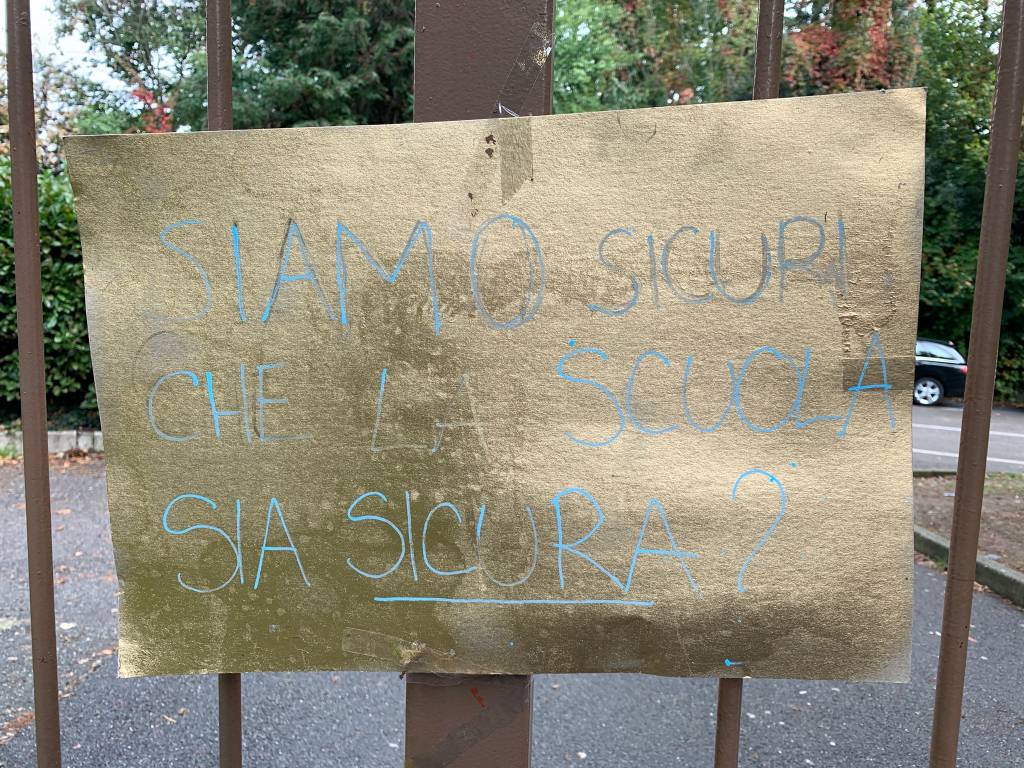 SIAMO SICURI
CHE LA SCUOLA
SIA SICURA?